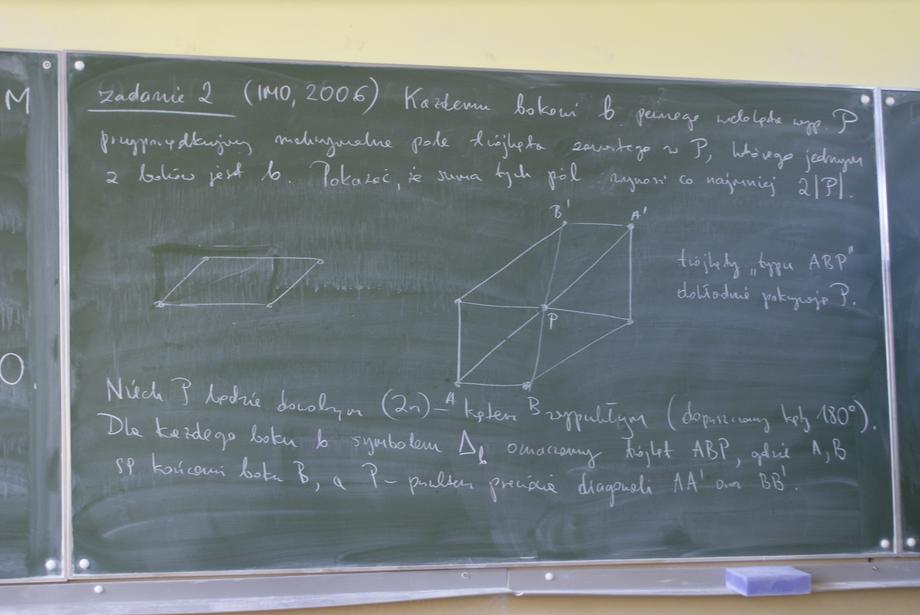 M
O.
zadanie 2 (IMO, 2006) Każdemu bokowi b pewnego wielokąta wyp. P
przyporządkujmy maksymalne pole trójkąta zawartego w P, którego jednym
z boków jest b. Pokazać, że suma tych pól wynosi co najmniej 2|P|.
B' A'
trójkąty „typu ABP"
dokładnie pokrywają P.
P
A B
Niech P będzie dowolnym (2n)-kątem wypukłym (dopuszczamy kąty 180°).
Dla każdego boku b symbolem Δb oznaczamy trójkąt ABP, gdzie A, B
są końcami boku B, a P - punktem przecięcia diagonali AA' oraz BB'.